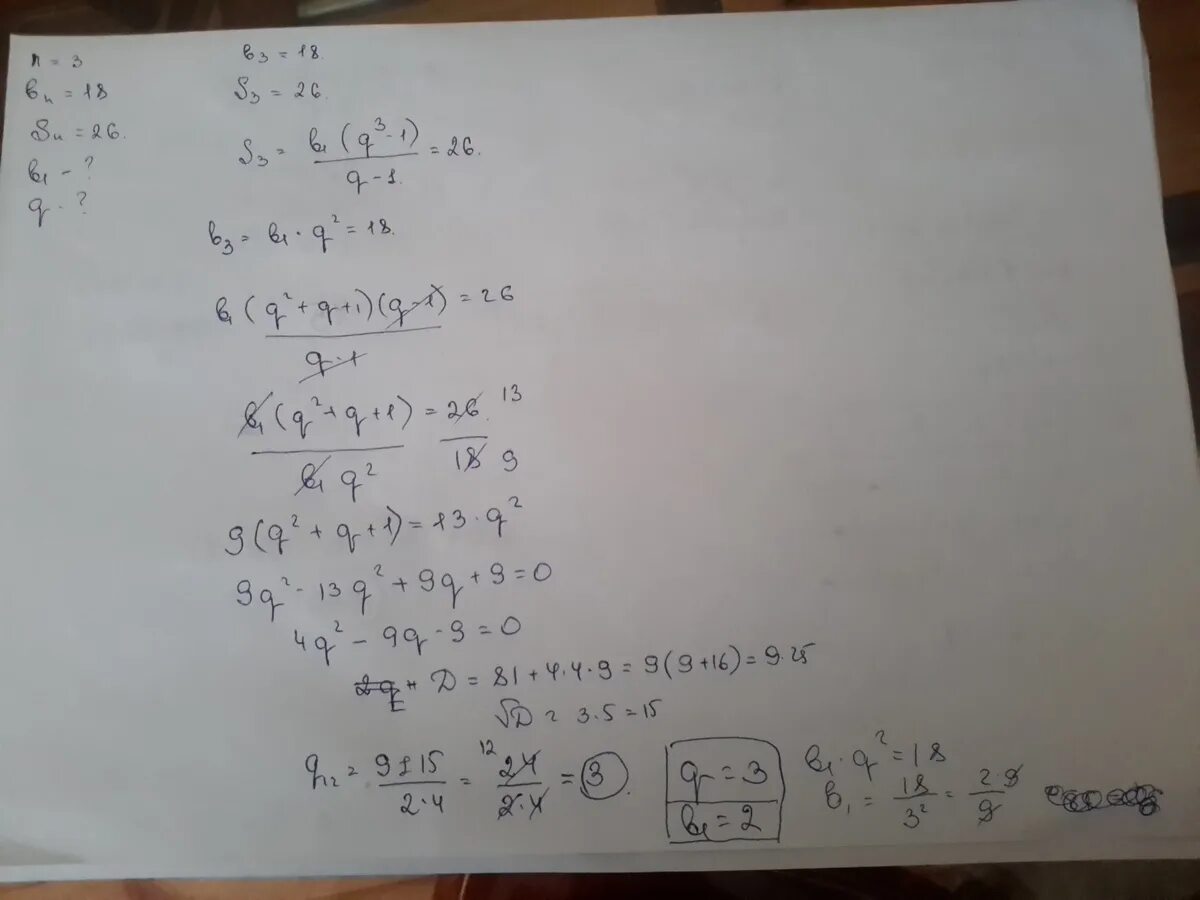 n = 3
bₙ = 18
Sₙ = 26.
b₁ - ?
q - ?
b₃ = 18.
S₃ = 26.
S₃ = b₁(q³-1) / q-1. = 26.
b₃ = b₁ · q² = 18.
b₁(q²+q+1)(q-1) / q-1 = 26
b₁(q²+q+1) / b₁ q² = 26 13 / 18 9
9(q²+q+1) = 13·q²
9q² - 13q² + 9q + 9 = 0
4q² - 9q - 9 = 0
D = 81 + 4·4·9 = 9(9+16) = 9·25
√D = 3·5 = 15
q₁₂ = 9±15 / 2·4 = 12 24 / 2·4 = 3.
q = 3
b₁ = 2
b₁·q² = 18
b₁ = 18 / 3² = 2·9 / 9